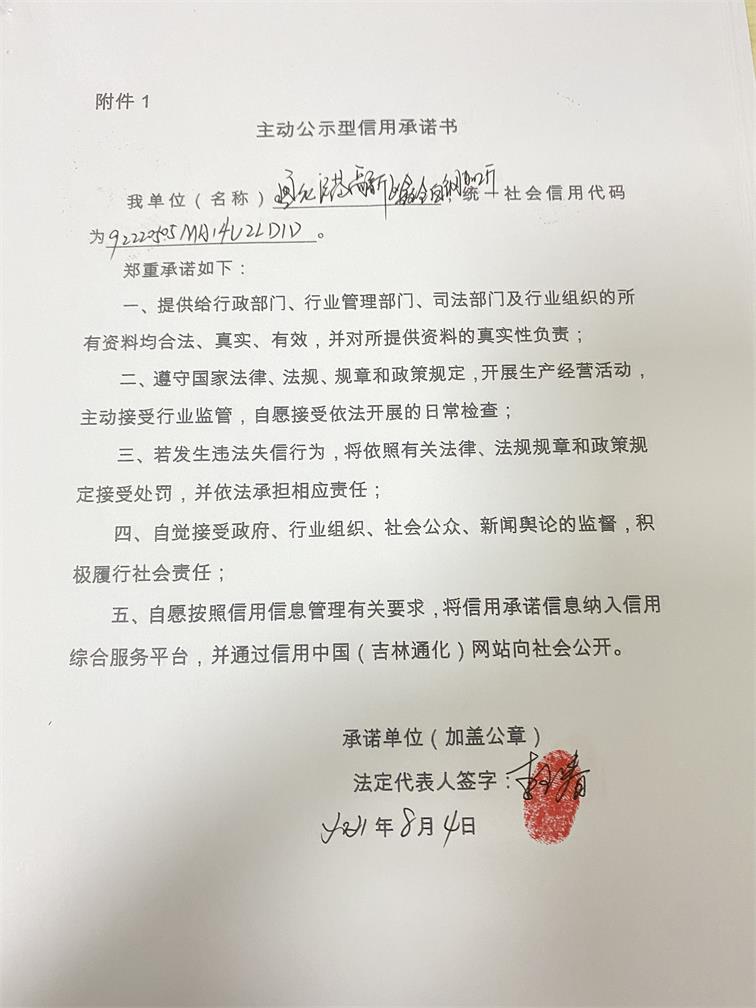 附件 1
主动公示型信用承诺书
我单位（名称） 统一社会信用代码
为92220505MA14U2LD1D。
郑重承诺如下：
一、提供给行政部门、行业管理部门、司法部门及行业组织的所
有资料均合法、真实、有效，并对所提供资料的真实性负责；
二、遵守国家法律、法规、规章和政策规定，开展生产经营活动，
主动接受行业监管，自愿接受依法开展的日常检查；
三、若发生违法失信行为，将依照有关法律、法规规章和政策规
定接受处罚，并依法承担相应责任；
四、自觉接受政府、行业组织、社会公众、新闻舆论的监督，积
极履行社会责任；
五、自愿按照信用信息管理有关要求，将信用承诺信息纳入信用
综合服务平台，并通过信用中国（吉林通化）网站向社会公开。
承诺单位（加盖公章）
法定代表人签字：
2021年8月4日